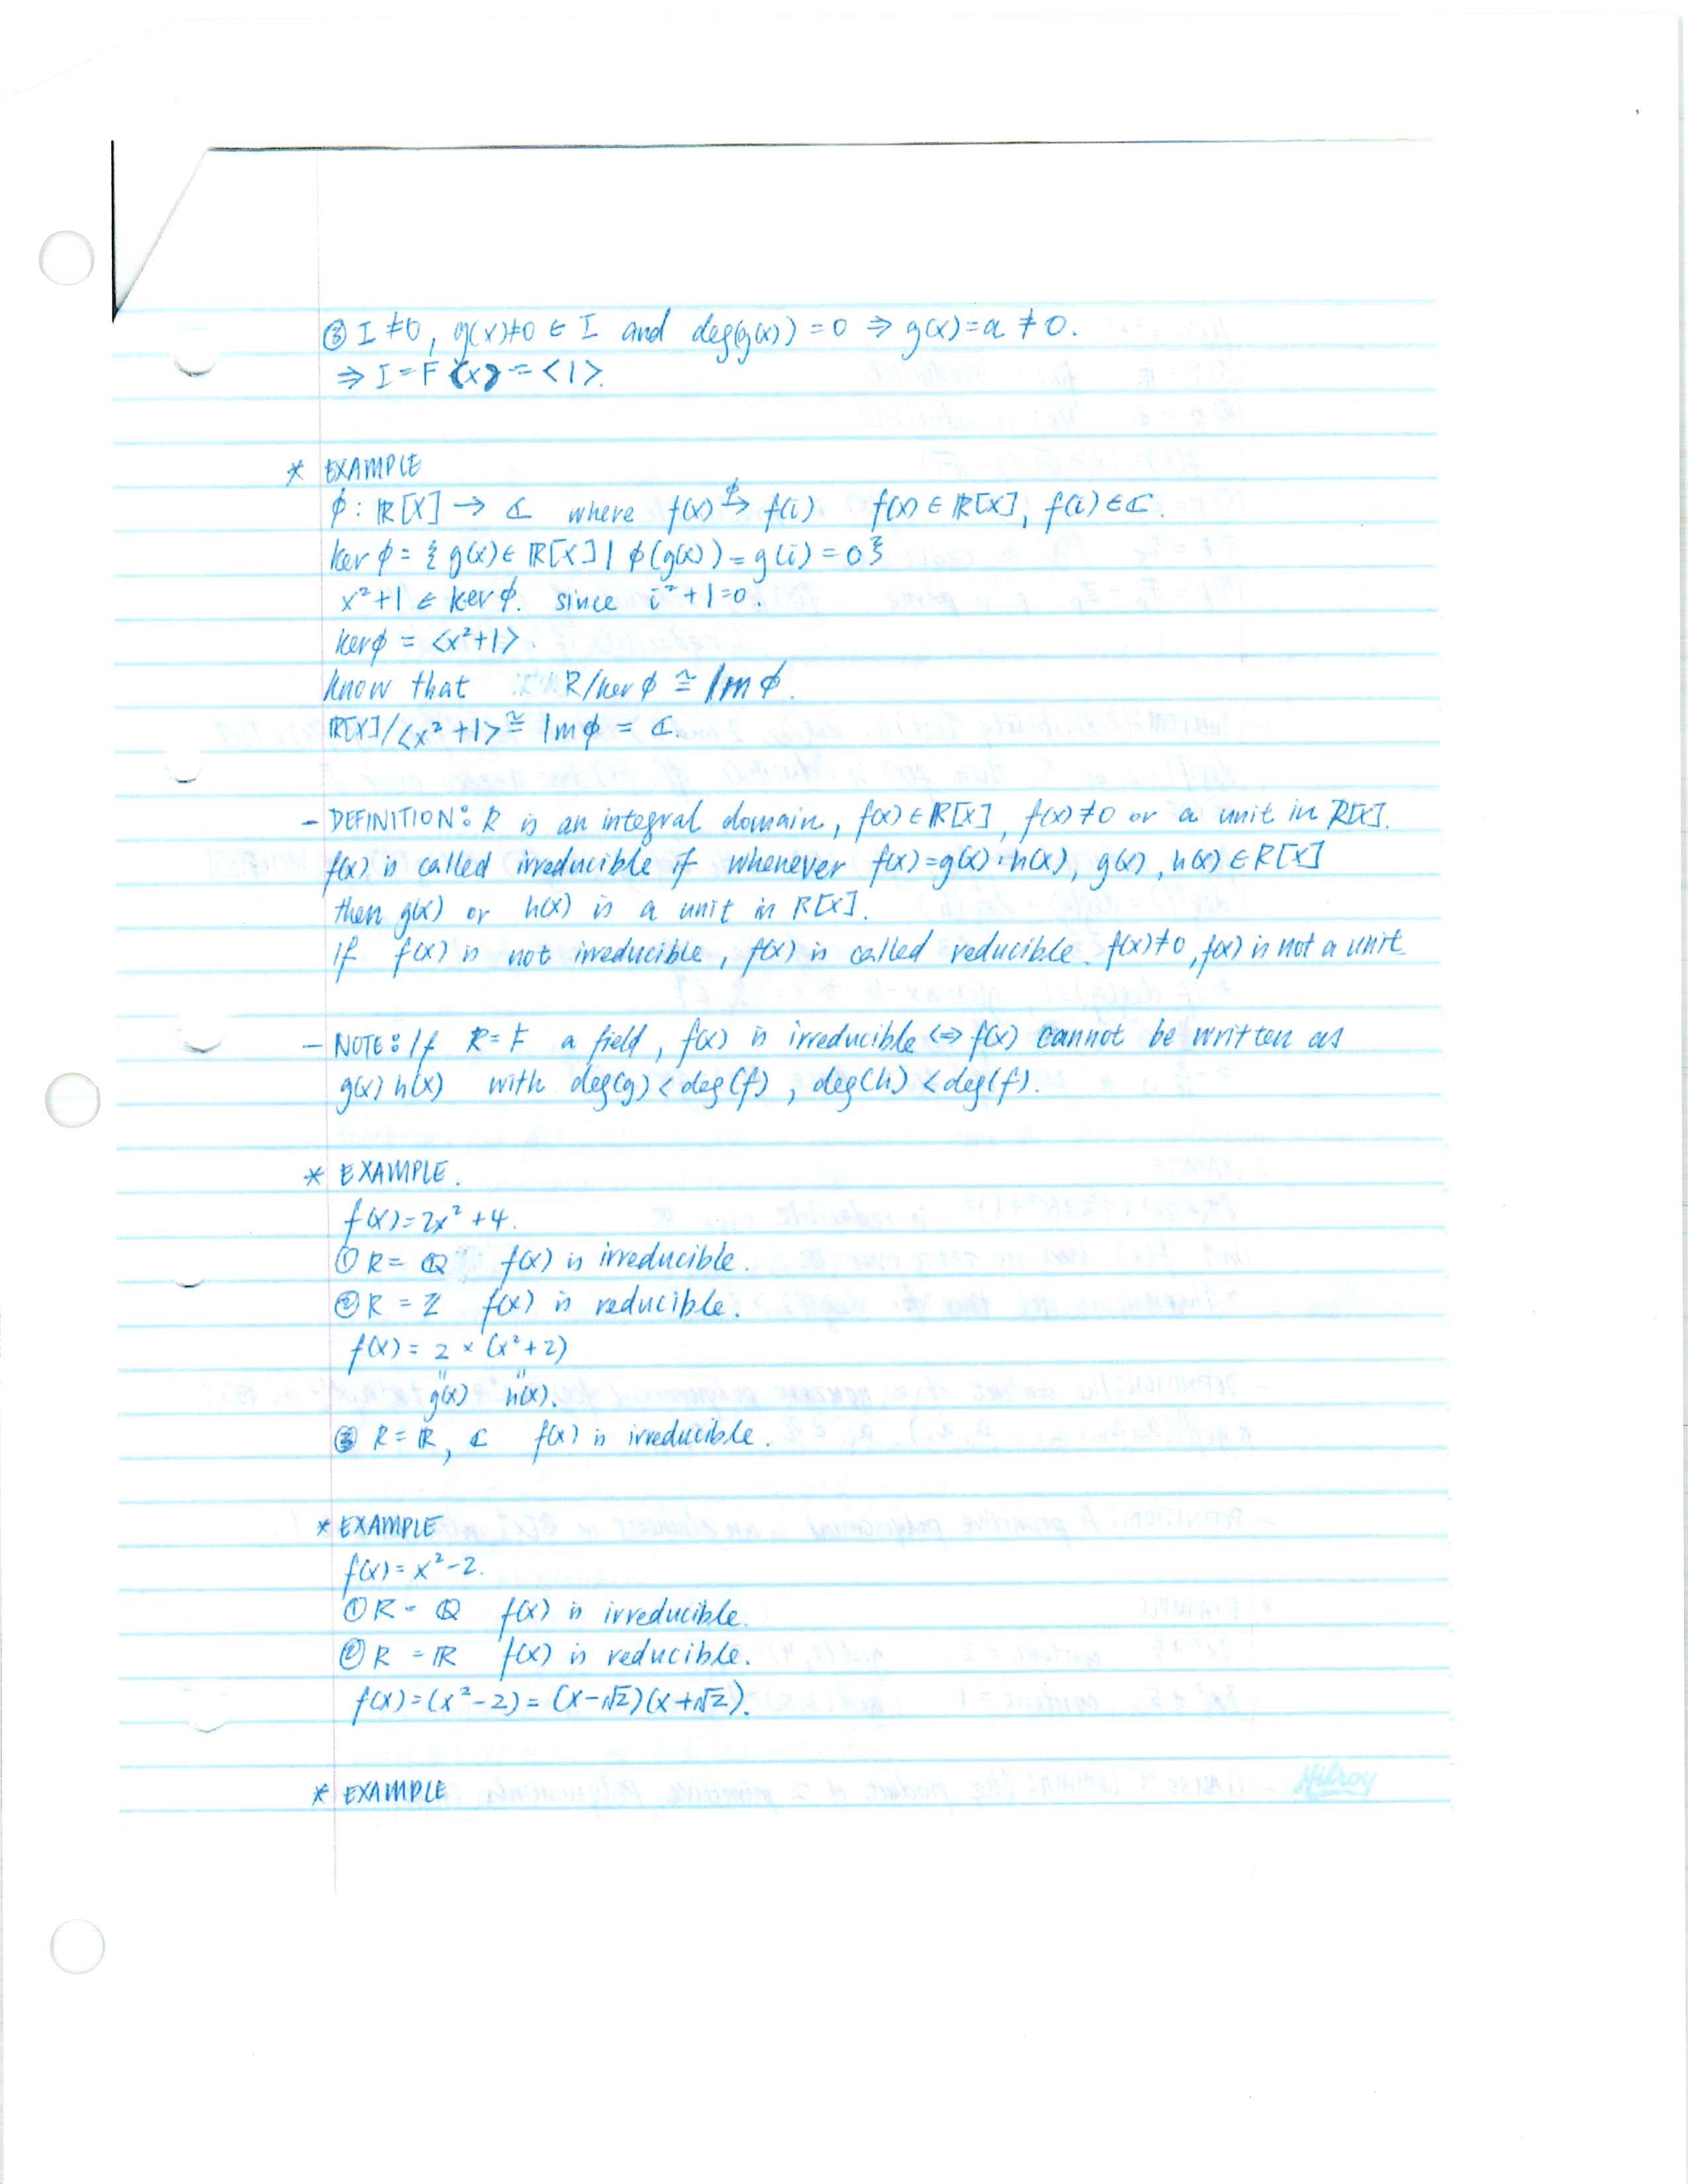 ③ I ≠ 0, g(x) ≠ 0 ∈ I and deg(g(x)) = 0 ⇒ g(x) = a ≠ 0.
⇒ I = F[x] = <1>.
* EXAMPLE
ϕ : ℝ[x] → ℂ where f(x) ↦ϕ f(i) f(x) ∈ ℝ[x], f(i) ∈ ℂ.
ker ϕ = { g(x) ∈ ℝ[x] | ϕ(g(x)) = g(i) = 0 }
x² + 1 ∈ ker ϕ. since i² + 1 = 0.
ker ϕ = <x² + 1>
know that R/ker ϕ ≅ Im ϕ.
ℝ[x]/<x² + 1> ≅ Im ϕ = ℂ.
- DEFINITION: R is an integral domain, f(x) ∈ R[x], f(x) ≠ 0 or a unit in R[x].
f(x) is called irreducible if whenever f(x) = g(x) · h(x), g(x), h(x) ∈ R[x]
then g(x) or h(x) is a unit in R[x].
If f(x) is not irreducible, f(x) is called reducible. f(x) ≠ 0, f(x) is not a unit
- NOTE: If R = F a field, f(x) is irreducible <=> f(x) cannot be written as
g(x) h(x) with deg(g) < deg(f), deg(h) < deg(f).
* EXAMPLE.
f(x) = 2x² + 4.
① R = ℚ f(x) is irreducible.
② R = ℤ f(x) is reducible.
f(x) = 2 × (x² + 2)
" "
g(x) h(x).
③ R = ℝ, ℂ f(x) is irreducible.
* EXAMPLE
f(x) = x² - 2.
① R = ℚ f(x) is irreducible.
② R = ℝ f(x) is reducible.
f(x) = (x² - 2) = (x - √2)(x + √2).
* EXAMPLE
Hilroy